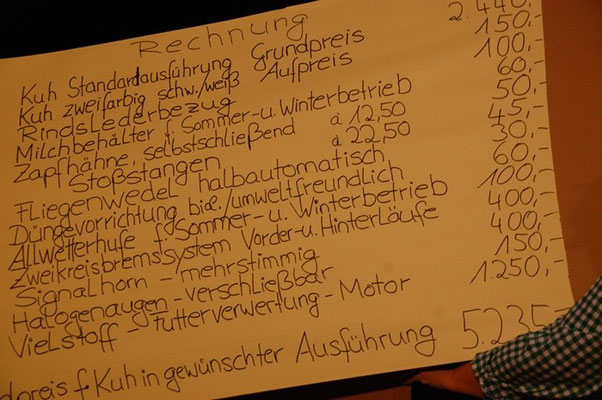 Rechnung
Kuh Standardausführung Grundpreis 2.440,-
Kuh zweifarbig schw./weiß Aufpreis 150,-
Rindslederbezug 100,-
Milchbehälter f. Sommer-u. Winterbetrieb 60,-
Zapfhähne, selbstschließend à 12,50 50,-
Stoßstangen à 22,50 45,-
Fliegenwedel halbautomatisch 30,-
Düngevorrichtung biol./umweltfreundlich 60,-
Allwetterhufe f. Sommer- u. Winterbetrieb 100,-
Zweikreisbremssystem Vorder-u. Hinterläufe 400,-
Signalhorn - mehrstimmig 400,-
Halogenaugen - verschließbar 150,-
Vielstoff - Futterverwertung - Motor 1.250,-
dpreis f Kuh in gewünschter Ausführung 5.235,-